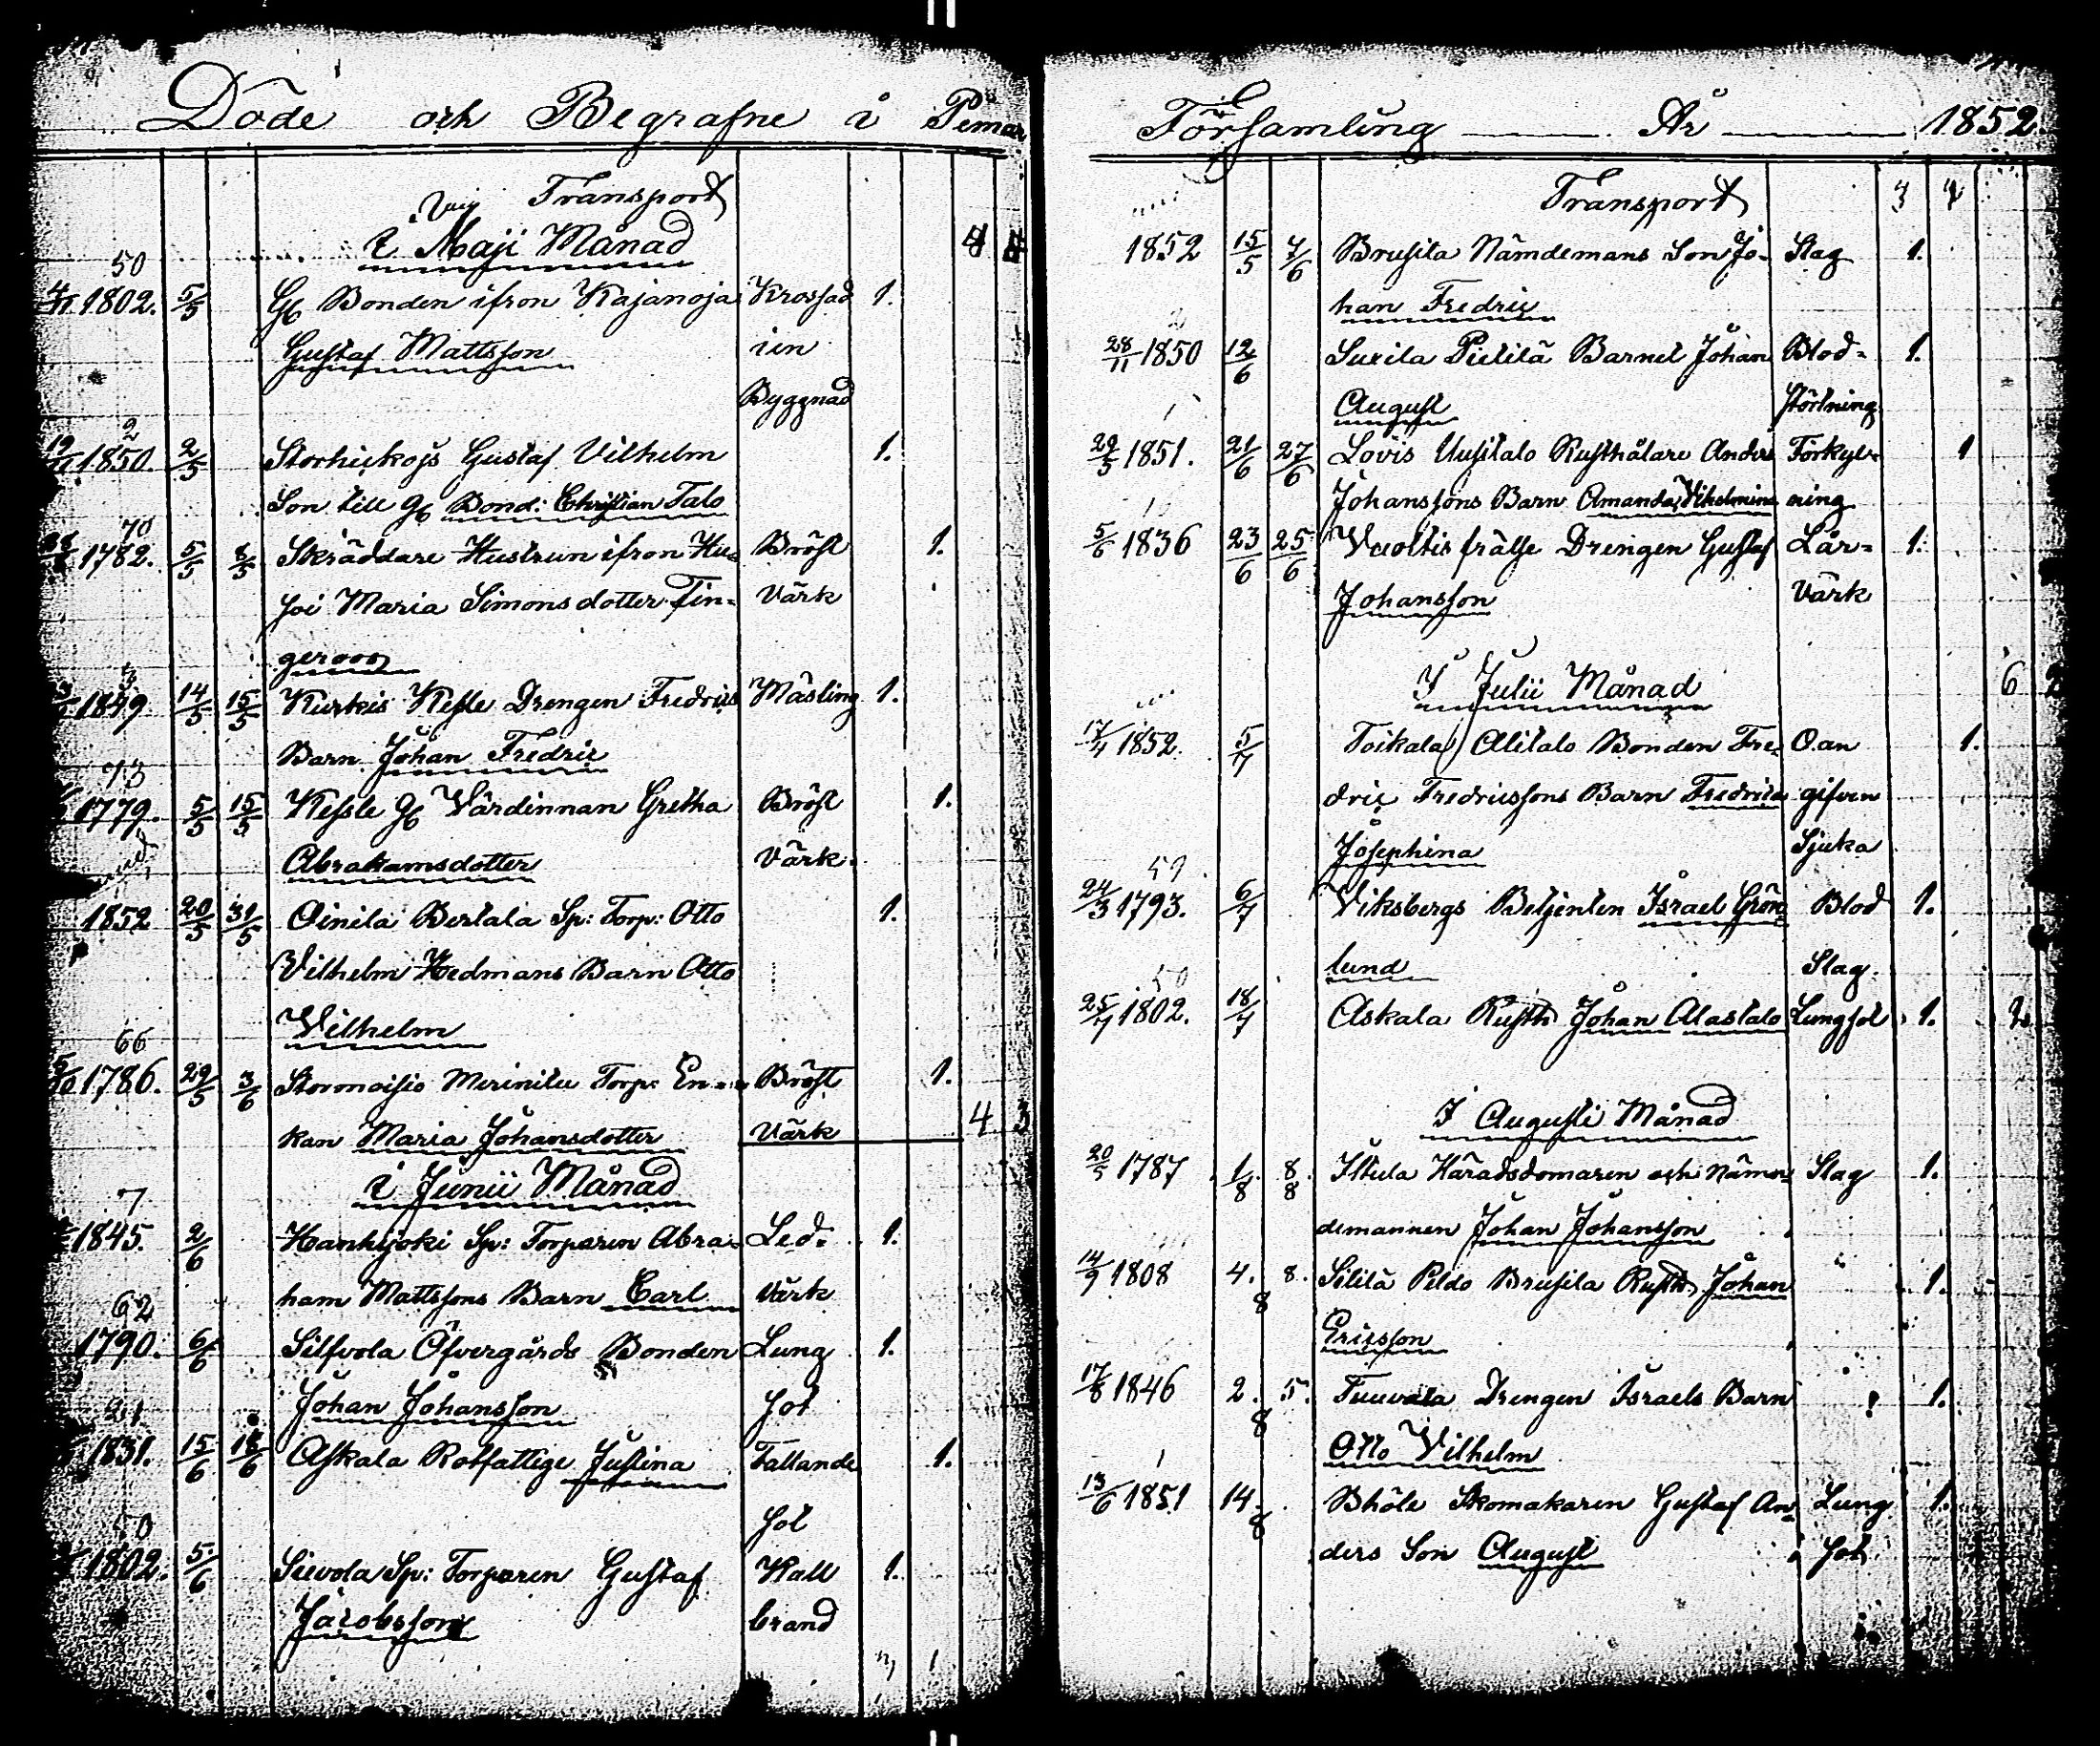 Döde och Begrafne i Pemar
Transport
i Maji Månad
50
4/11 1802. 5/5 Gl Bonden ifron Kajanoja Krossad 1.
Gustaf Mattsson i en
Byggnad
2
19/11 1850. 2/5 Storheikojs Gustaf Vilhelm 1.
Son till Gl Bond: Christian Talo
70
1782. 5/5 8/5 Skräddare Hustrun ifron Hu= Bröst 1.
joi Maria Simonsdotter Fin= Värk
geroos
3
1849 14/5 15/5 Kurkis Kessle Drengen Fredrics Mäsling 1.
Barn Johan Fredric
73
1779. 5/5 15/5 Kessle Gl Värdinnan Gretha Bröst 1.
Abrahamsdotter Värk
1852 20/5 31/5 Oinila Bertala Sp: Torp: Otto 1.
Vilhelm Hedmans Barn Otto
Vilhelm
66
5/10 1786. 29/5 3/6 Stormoisio Merinitu Torp: En= Bröst 1.
kan Maria Johansdotter Värk 4 3
i Junii Månad
7
1845. 2/6 Hankijoki Sp: Torparen Abra= Led= 1.
ham Mattssons Barn Carl Värk
62
1790. 6/6 Silfvola Öfvergårds Bonden Lung 1.
Johan Johansson Sot
21
1831. 15/6 18/6 Askala Rotfattige Justina Fallande 1.
Sot
50
1802. 5/6 Sievola Sp: Torparen Gustaf Kall 1.
Jacobsson brand
3 1
Församling År 1852.
Transport 3 1
1852 15/5 7/6 Brusila Nämdemans Son Jo= Slag 1.
han Fredric
2
28/11 1850 12/6 Suxila Pietilä Barnet Johan Blod= 1.
August störtning
1
29/5 1851. 21/6 27/6 Lovis Uusitalo Rusthålare Anders Förkyl= 1
Johanssons Barn Amanda Vilhelmina ning
5/6 1836 23/6 25/6 Vuoltis frälse Drengen Gustaf Lår= 1.
Johansson Värk
I Julii Månad 6 2
17/4 1852. 5/7 Toikala Alitalo Bonden Fre= Oan 1.
dric Fredricssons Barn Fredrica gifven
Josephina Sjuka
59
24/3 1793. 6/7 Viksbergs Betjenten Israel Grön Blod 1.
lund Slag
50
25/7 1802. 18/7 Askala Rusth Johan Alastalo Lungsot 1. 2
I Augusti Månad
20/5 1787 1/8 8/8 Iltula Häradsdomaren och Näm= Slag 1.
demannen Johan Johansson
14/9 1808 4. 8. 8 Sililä Peldo Brusila Rusth Johan 1.
Ericsson
17/8 1846 2. 5. 8 Tuuvala Drengen Israels Barn 1.
Otto Vilhelm
1
13/6 1851 14. 8 Bhöle Skomakaren Gustaf An= Lung 1.
ders Son August Sot